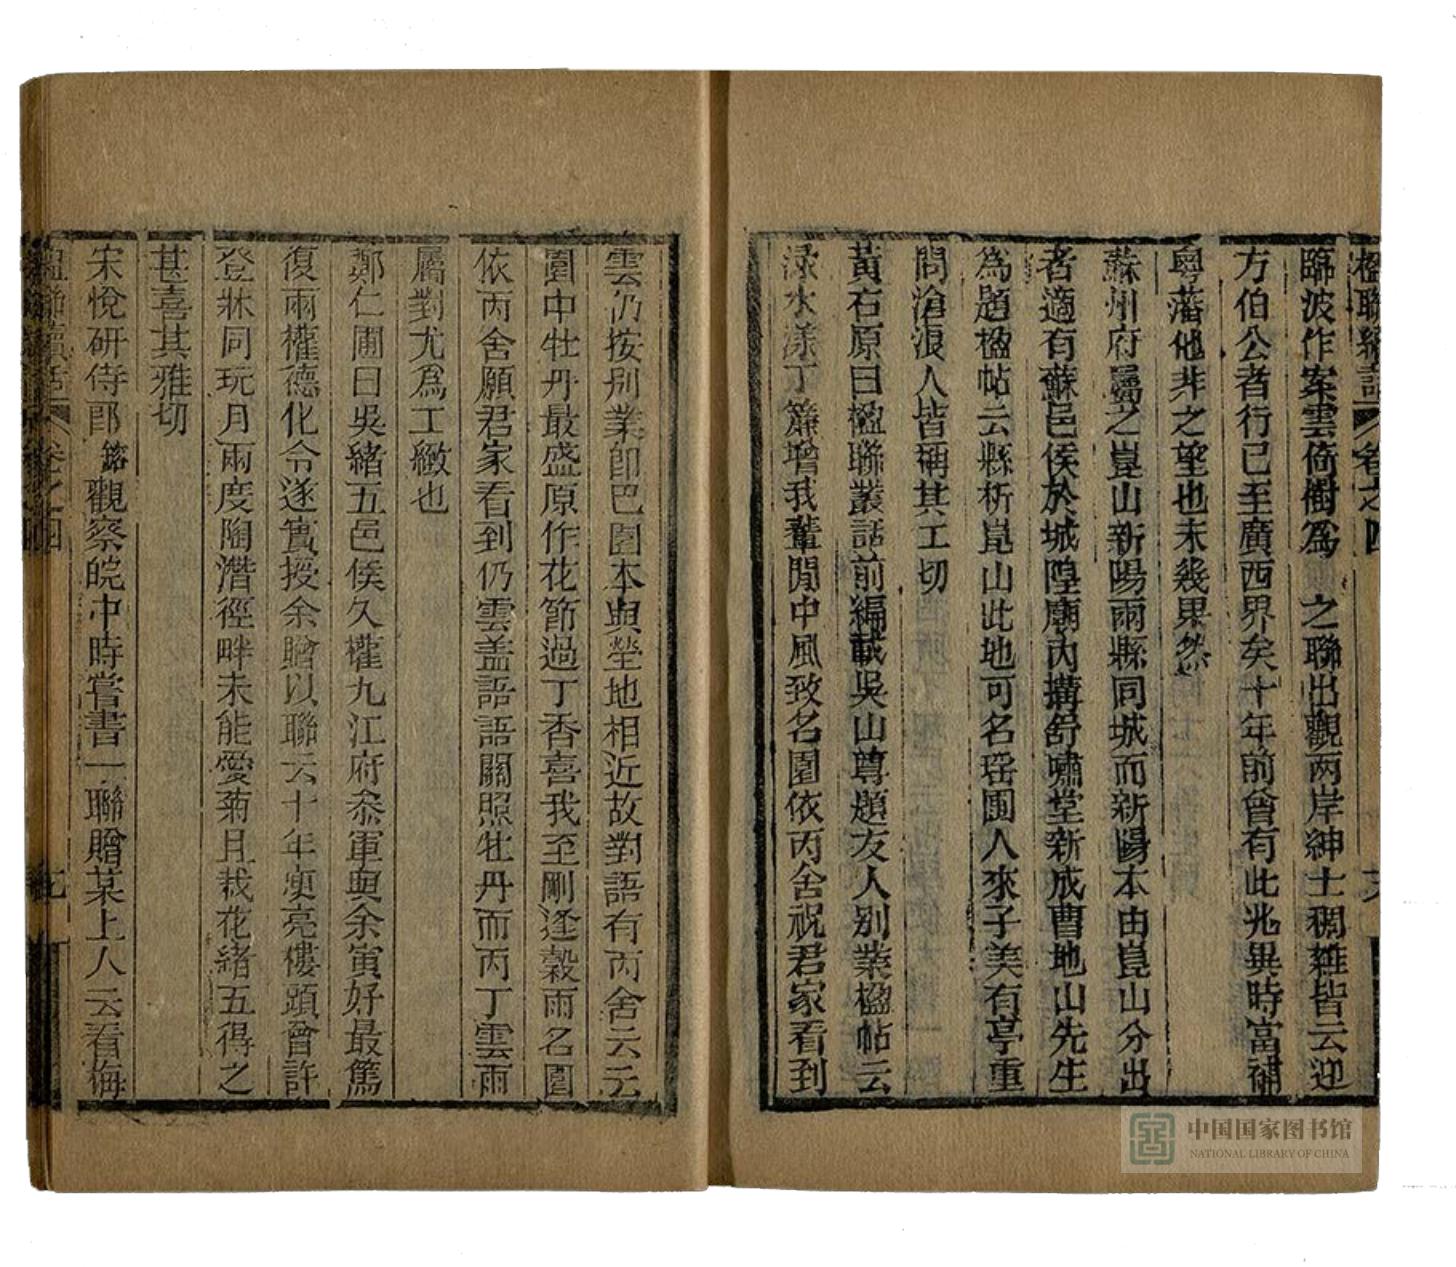 楹聯續話 卷之四
臨波作案雲倚樹爲 之聯出觀兩岸紳士稠雜皆云迎
方伯公者行已至廣西界矣十年前曾有此兆異時富補
粵藩他非之望也未幾果然
蘇州府屬之崑山新陽兩縣同城而新陽本由崑山分出
者適有蘇邑侯於城隍廟內搆舒嘯堂新成曹地山先生
為題楹帖云縣析崑山此地可名瑶圃人來子美有亭重
問滄浪人皆稱其工切
黃右原曰楹聯叢話前編載吳山尊題友人别業楹帖云
淥水漾丁簾增我輩閒中風致名園依丙舍祝君家看到
雲仍按别業即巴園本與塋地相近故對語有丙舍云云
園中牡丹最盛原作花節過丁香喜我至剛逢穀雨名園
依丙舍願君家看到仍雲盖語語關照牡丹而丙丁雲雨
屬對尤爲工緻也
鄭仁圃曰吳緒五邑侯久權九江府叅軍與余寅好最篤
復兩權德化令遂實授余贈以聯云十年庾亮樓頭曾許
登牀同玩月兩度陶潛徑畔未能愛菊且栽花緒五得之
甚喜其雅切
宋悅研侍郎 鎔 觀察皖中時嘗書一聯贈某上人云看梅
楹聯續話 卷之四
中国国家图书馆
NATIONAL LIBRARY OF CHINA